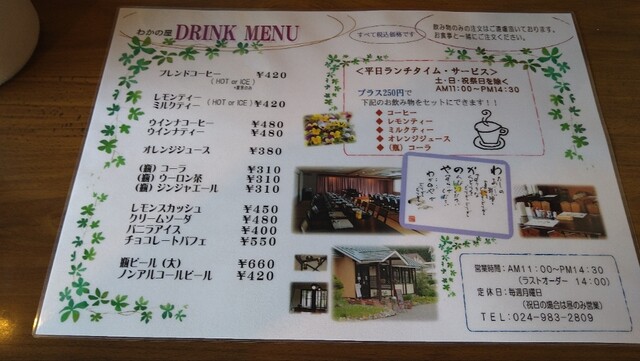 わかの屋 DRINK MENU
すべて税込価格です
飲み物のみの注文はご遠慮頂いております。
お食事と一緒にご注文ください。
ブレンドコーヒー ¥420
(HOT or ICE)
レモンティー
ミルクティー (HOT or ICE) ¥420
ウインナコーヒー ¥480
ウインナティー ¥480
オレンジジュース ¥380
(瓶) コーラ ¥310
(瓶) ウーロン茶 ¥310
(瓶) ジンジャエール ¥310
レモンスカッシュ ¥450
クリームソーダ ¥480
バニラアイス ¥400
チョコレートパフェ ¥550
瓶ビール (大) ¥660
ノンアルコールビール ¥420
<平日ランチタイム・サービス>
土・日・祝祭日を除く
AM11:00~PM14:30
プラス250円で
下記のお飲み物をセットにできます!!
◆ コーヒー
◆ レモンティー
◆ ミルクティー
◆ オレンジジュース
◆ (瓶) コーラ
営業時間:AM11:00~PM14:30
(ラストオーダー 14:00)
定休日:毎週月曜日
(祝日の場合は昼のみ営業)
TEL:024-983-2809